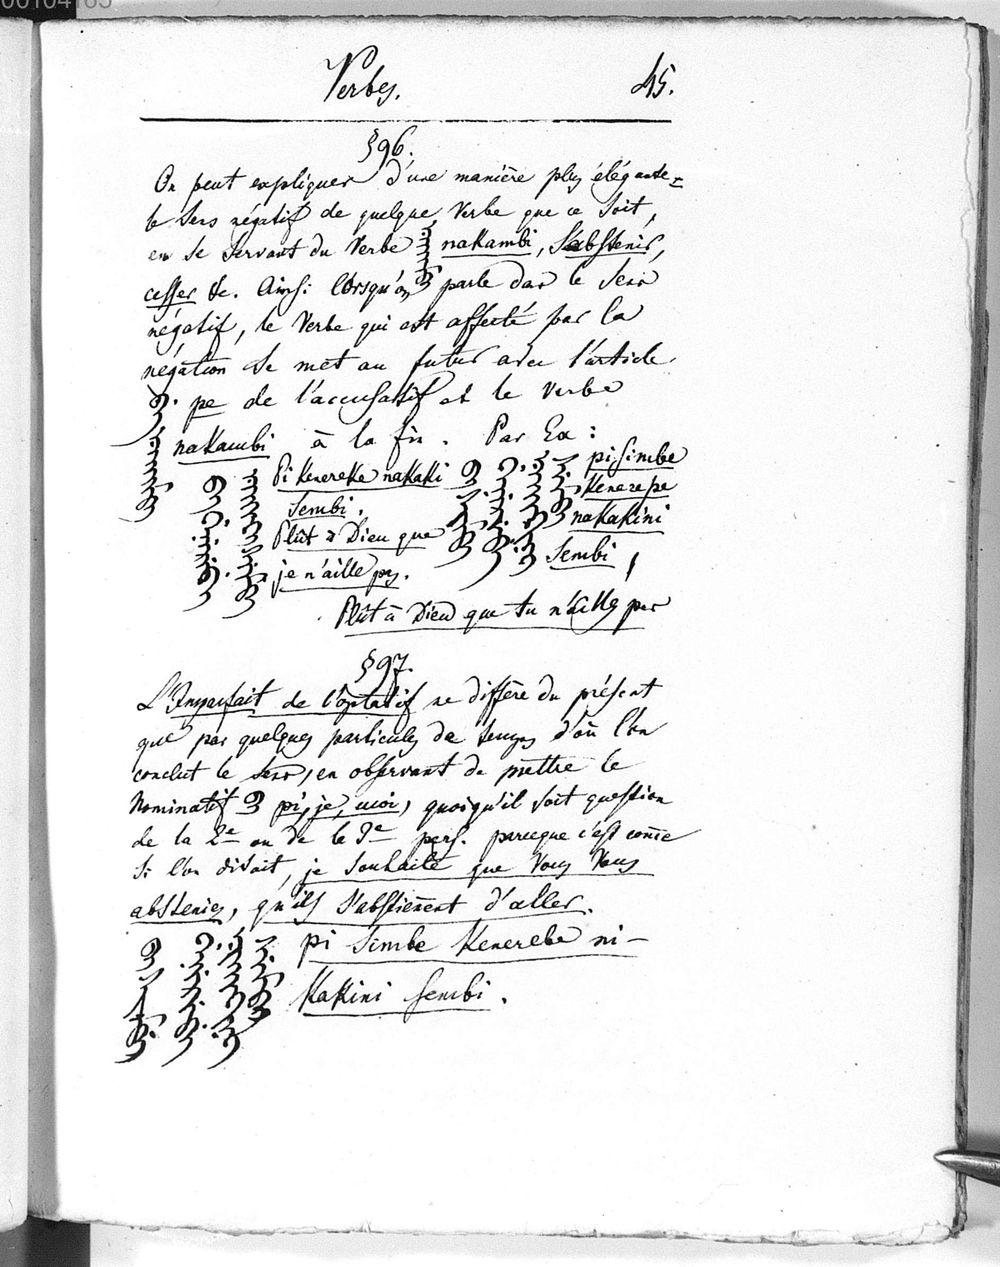 00104165
Verbes. 45.
§96.
On peut expliquer d'une manière plus élégante
le sens négatif de quelque Verbe que ce soit,
en se servant du Verbe nakambi, s'abstenir,
cesser &c. Ainsi lorsqu'on parle dans le sens
négatif, le Verbe qui est affecté par la
négation se met au futur avec l'article
pe de l'accusatif et le verbe
nakambi à la fin. Par Ex:
Pi kenereke nakaki
sembi.
Plût à Dieu que
je n'aille pas.
pi simbe
kenerepe
nakakini
sembi,
Plût à Dieu que tu n'ailles pas
§97.
L'Imparfait de l'optatif ne diffère du présent
que par quelques particules de temps d'où l'on
conclut le sens, en observant de mettre le
Nominatif pi, je, moi, quoiqu'il soit question
de la 2e ou de la 3e pers. parceque c'est come
si l'on disait, je souhaite que Vous Vous
absteniez, qu'ils s'abstienent d'aller.
pi simbe kenerebe ni-
kakini sembi.